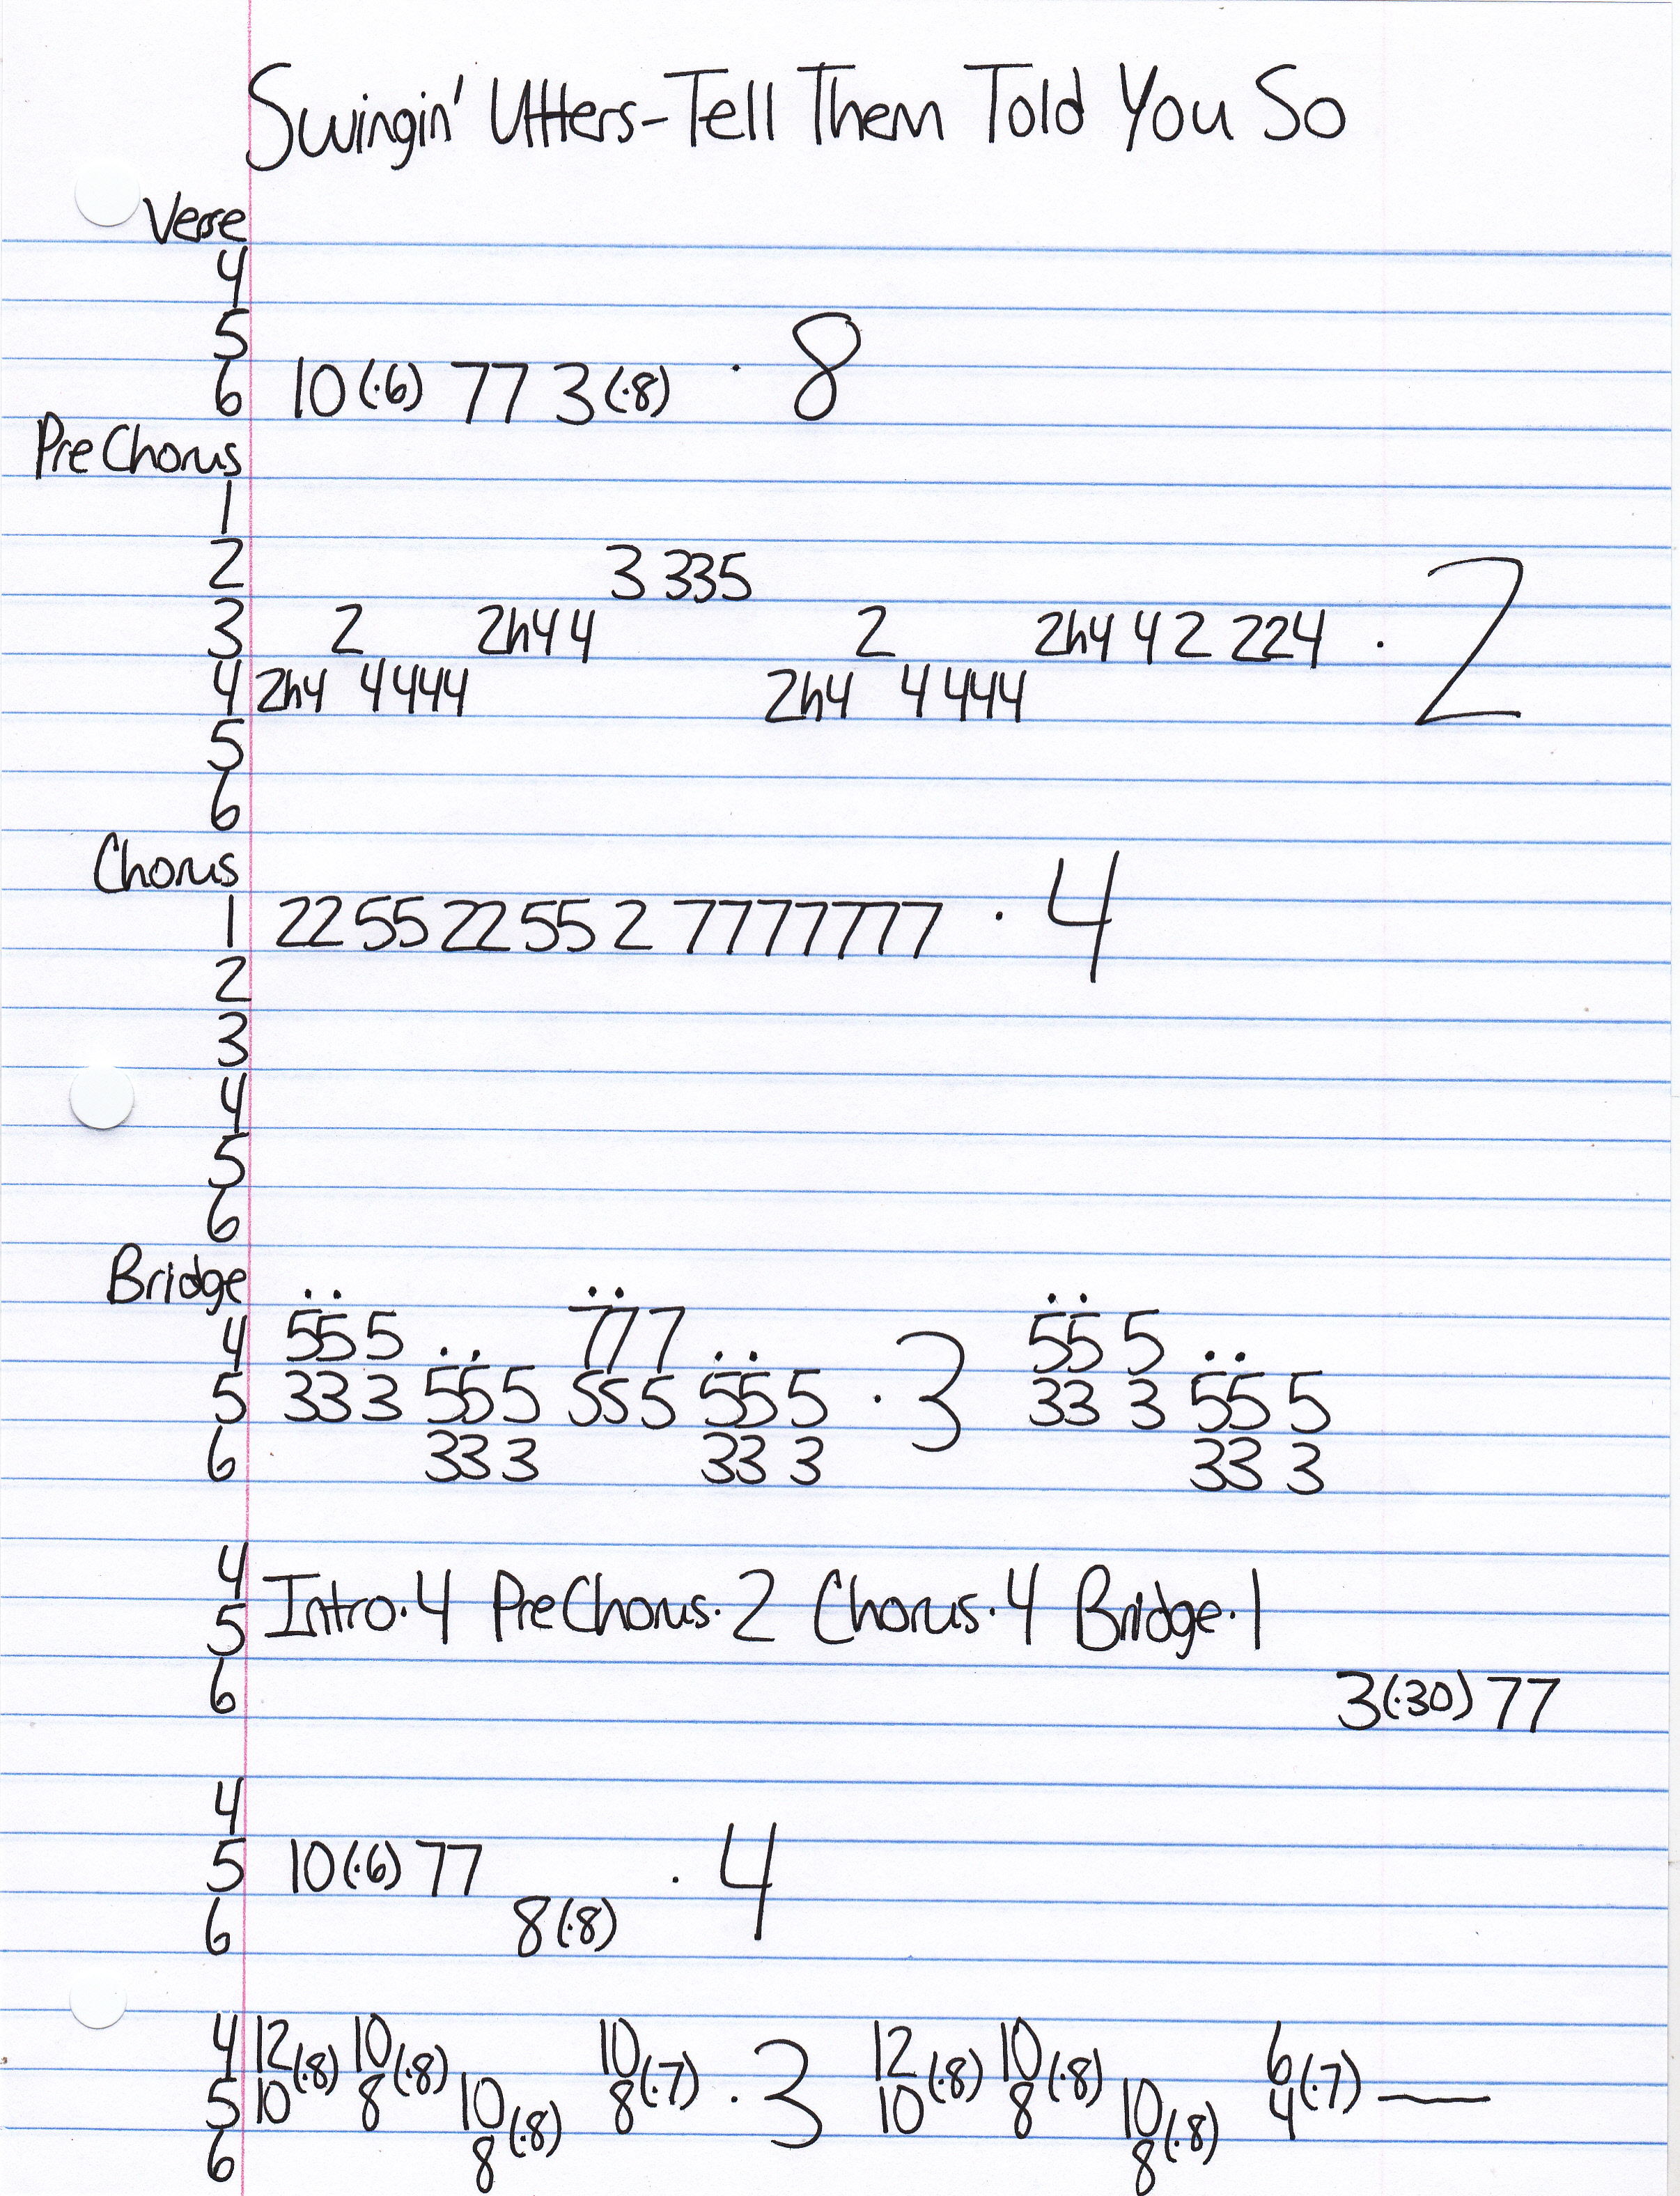 Swingin' Utters-Tell Them Told You So
Verse
4
5
6 10(·6) 77 3(·8) · 8
Pre Chorus
1
2 3 335
3 2 2h4 4 2 2h4 4 2 224 · 2
4 2h4 4 444 2h4 4 444
5
6
Chorus
1 22 55 22 55 2 7777777 · 4
2
3
4
5
6
Bridge
4 55 5 77 7 55 5
5 33 3 55 5 55 5 55 5 · 3 33 3 55 5
6 33 3 33 3 33 3
4
5 Intro·4 PreChorus·2 Chorus·4 Bridge·1
6 3(·30) 77
4
5 10(·6) 77 · 4
6 8(·8)
4 12(·8) 10(·8) 10(·7) · 3 12(·8) 10(·8) 6(·7) —
5 10 8 10(·8) 8 10 8 10(·8) 4
6 8 8